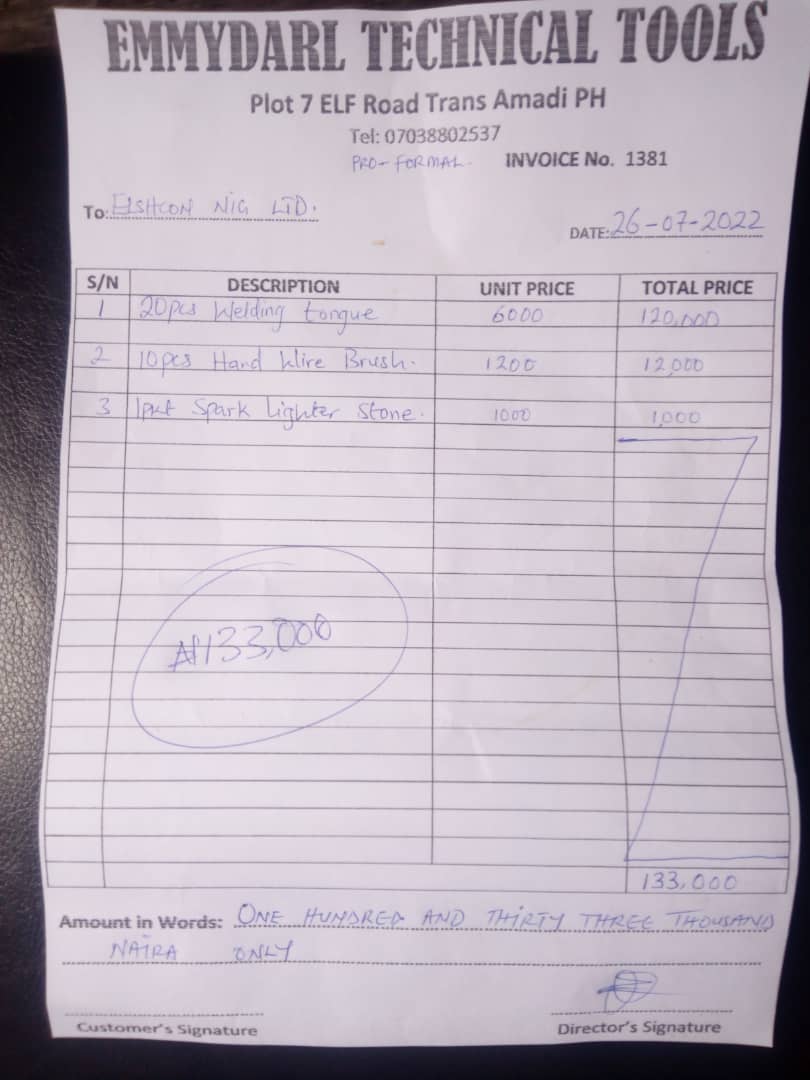 EMMYDARL TECHNICAL TOOLS
Plot 7 ELF Road Trans Amadi PH
Tel: 07038802537
PRO-FORMAL. INVOICE No. 1381
To: ELSHCON NIG LTD.
DATE: 26-07-2022
S/N DESCRIPTION UNIT PRICE TOTAL PRICE
1 20pcs Welding tongue 6000 120,000
2 10pcs Hand Wire Brush. 1200 12,000
3 1pkt Spark Lighter Stone. 1000 1,000
₦133,000
133,000
Amount in Words: ONE HUNDRED AND THIRTY THREE THOUSAND
NAIRA ONLY
Customer's Signature Director's Signature